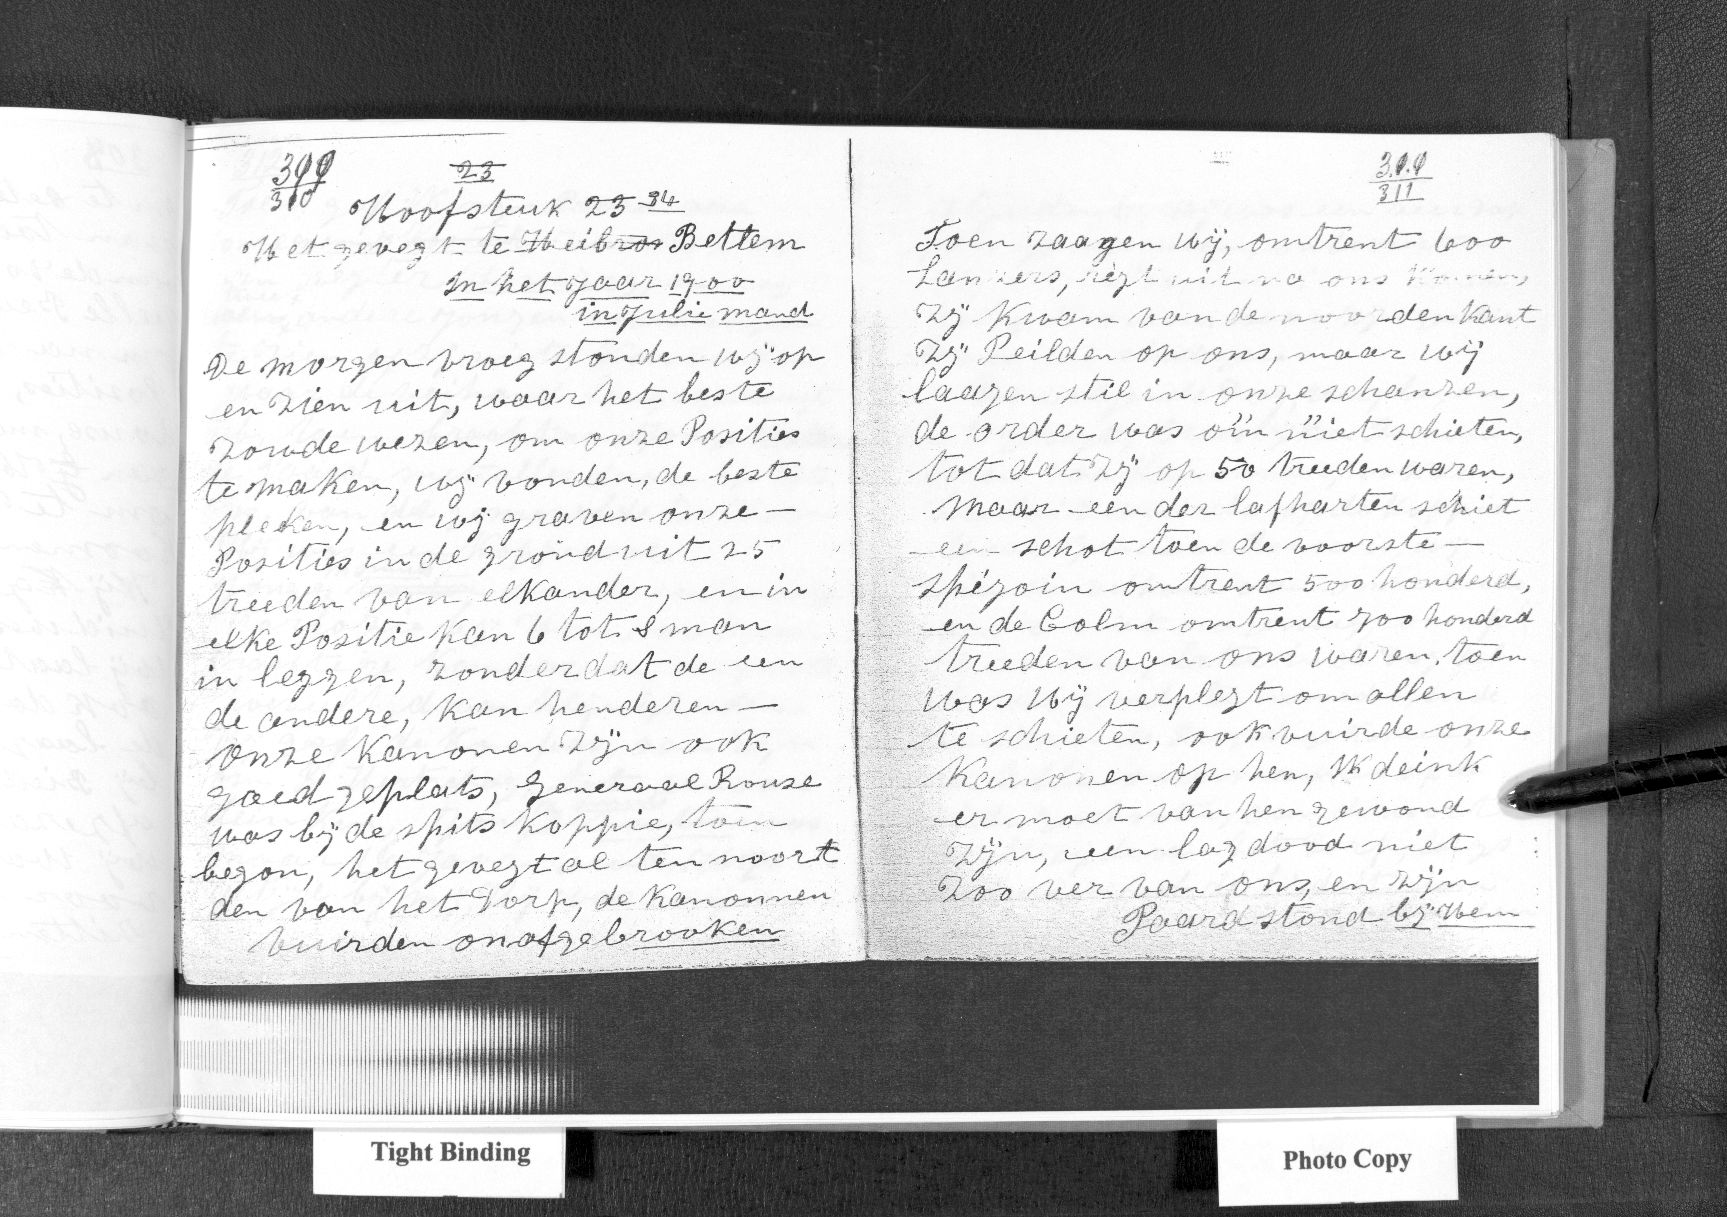 300
310
23
Hoofsteuk 23 34
Het gevegt te Heibron Bettem
In het Jaar 1900
in Julie mand
De morgen vroeg stonden wÿ op
en zien uit, waar het beste
zoude wezen, om onze Posities
te maken, wÿ vonden, de beste
pleken, en wÿ graven onze —
Posities in de grond uit 25
treeden van elkander, en in
elke Positie kan 6 tot 8 man
in leggen, zonder dat de een
de andere, kan henderen —
Onze Kanonen zÿn ook
goed geplats, Generaal Rouze
was bÿ de spits koppie, toen
begon, het gevegt al ten noort
den van het Dorp, de Kanonnen
vuirden onafgebrooken
311
Toen zaagen wÿ, omtrent 600
Lansers, regt uit na ons komen,
Zÿ kwam van de noorden kant
Zÿ Peilden op ons, maar wÿ
laagen stil in onze schanzen,
de order was om niet schieten,
tot dat zÿ op 50 treeden waren,
maar een der lafharten schiet
een schot toen de voorste —
spezoin omtrent 500 honderd,
en de Colm omtrent 700 honderd
treeden van ons waren. toen
was wÿ verplegt om allen
te schieten, ook vuirde onze
Kanonen op hen, Ik deink
er moet van hen gewond
zÿn, een lag dood niet
zoo ver van ons, en zÿn
Paard stond bÿ Hem
Tight Binding
Photo Copy